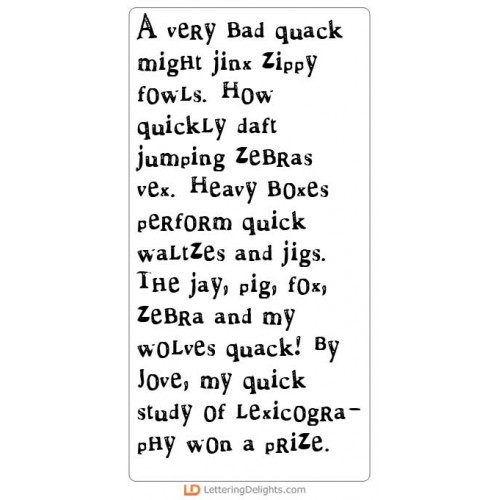 A very Bad quack
might jinx zippy
fowls. How
quickly daft
jumping zebras
vex. Heavy Boxes
perform quick
waltzes and jigs.
The jay, pig, fox,
zebra and my
wolves quack! By
Jove, my quick
study of lexicogra-
phy won a prize.
LD LetteringDelights.com